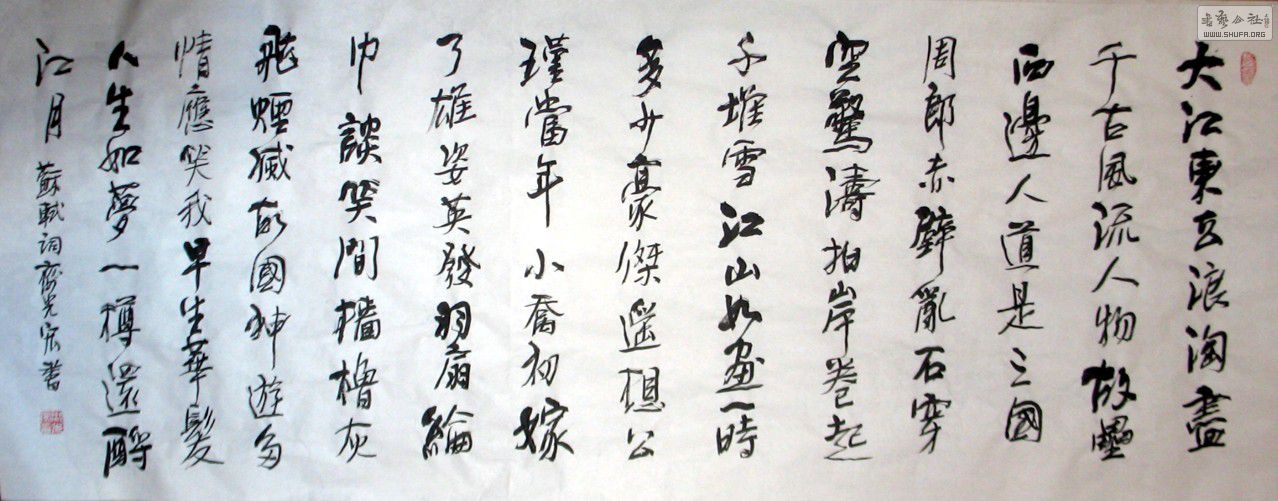 大江東去浪淘盡
千古風流人物故壘
西邊人道是三國
周郎赤壁亂石穿
空驚濤拍岸卷起
千堆雪江山如畫一時
多少豪傑遥想公
瑾當年小喬初嫁
了雄姿英發羽扇綸
巾談笑間檣櫓灰
飛煙滅故國神遊多
情應笑我早生華髮
人生如夢一樽還酹
江月
蘇軾詞 書
WWW.SHUFA.ORG